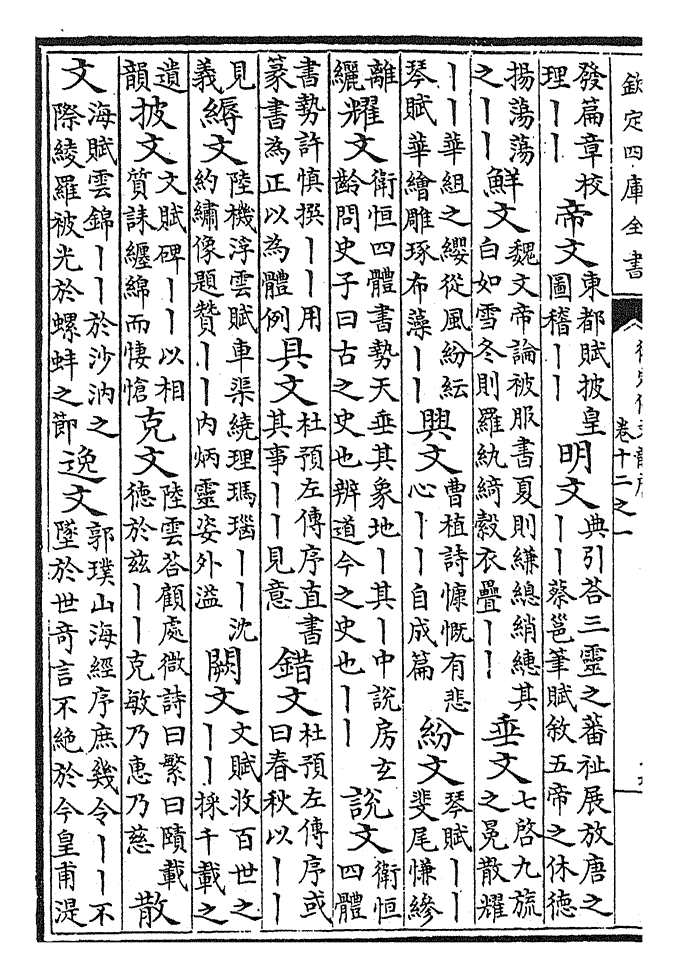 欽定四庫全書
卷十二之一
發篇章校
理丨丨
帝文
東都賦披皇
圖稽丨丨
明文
典引荅三靈之蕃祉展放唐之
丨丨蔡邕筆賦敘五帝之休德
揚蕩蕩
之丨丨
鮮文
魏文帝論被服書夏則縑總綃繐其
白如雪冬則羅紈綺縠衣疊丨丨
垂文
七啓九旒
之冕散耀
丨丨華組之纓從風紛紜
琴賦華繪雕琢布藻丨丨
興文
曹植詩慷慨有悲
心丨丨自成篇
紛文
琴賦丨丨
斐尾慊縿
離
纚
耀文
衛恒四體書勢天垂其象地丨其丨中說房玄
齡問史子曰古之史也辨道今之史也丨丨
說文
衛恒
四體
書勢許慎撰丨丨用
篆書為正以為體例
具文
杜預左傳序直書
其事丨丨見意
錯文
杜預左傳序或
曰春秋以丨丨
見
義
縟文
陸機浮雲賦車渠繞理瑪瑙丨丨沈
約繡像題贊丨丨内炳靈姿外溢
闕文
文賦收百世之
丨丨採千載之
遺
韻
披文
文賦碑丨丨以相
質誄纏綿而悽愴
克文
陸雲荅顧處微詩曰繁曰賾載
德於茲丨丨克敏乃惠乃慈
散
文
海賦雲錦丨丨於沙汭之
際綾羅被光於螺蚌之節
逸文
郭璞山海經序庶幾令丨丨不
墜於世奇言不絶於今皇甫湜